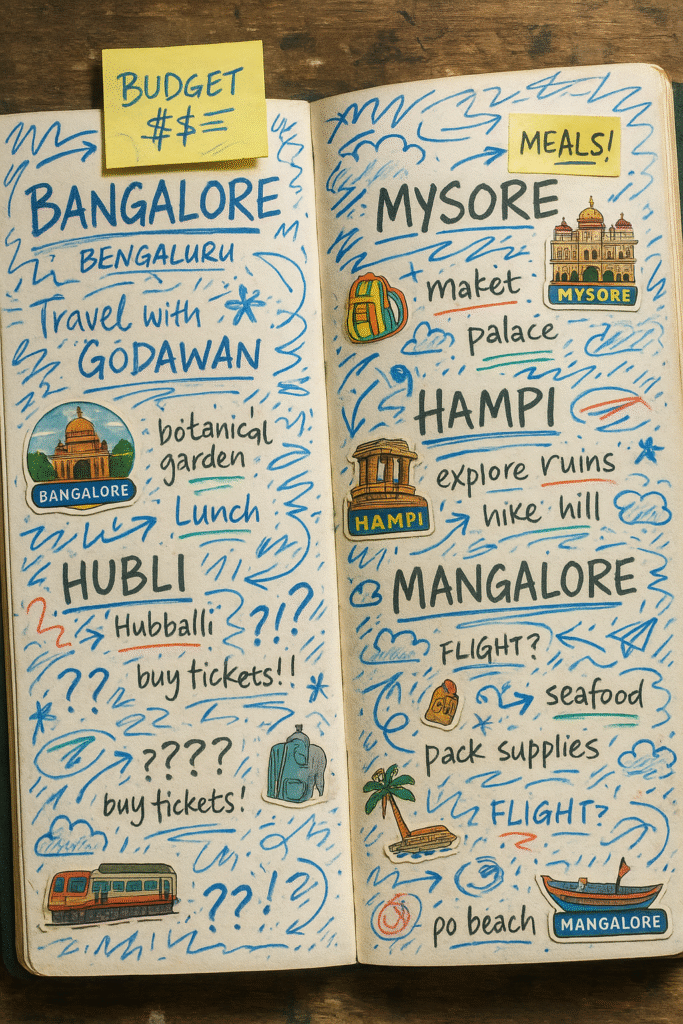 BUDGET
#$=
BANGALORE
BENGALURU
Travel with
GODAWAN
botanical
garden
BANGALORE
Lunch
HUBLI
Hubballi
?!?
??
buy tickets!!
????
buy tickets!
??!
MEALS!
MYSORE
MYSORE
maket
palace
HAMPI
explore ruins
HAMPI
hike hill
MANGALORE
FLIGHT?
seafood
pack supplies
FLIGHT?
po beach
MANGALORE